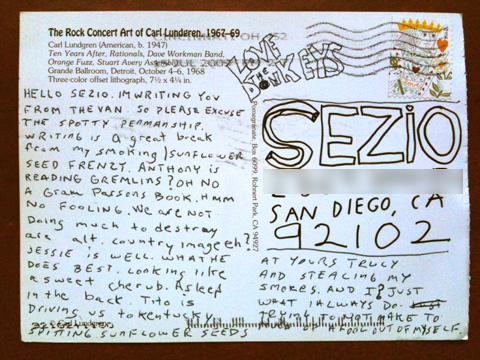 The Rock Concert Art of Carl Lundgren, 1967–69
Carl Lundgren (American, b. 1947)
Ten Years After, Rationals, Dave Workman Band,
Orange Fuzz, Stuart Avery
Grande Ballroom, Detroit, October 4–6, 1968
Three-color offset lithograph, 7½ x 4¼ in.
CINCINNATI OH 452
HELLO SEZIO. IM WRITING YOU
FROM THE VAN. SO PLEASE EXCUSE
THE SPOTTY PENMANSHIP.
WRITING is A great break
from my smoking/SUNFLOWER
SEED FRENZY. ANTHONY is
READING GREMLINS? OH NO
A Gram Parsons BOOK. HMM
NO FOOLING. We are NOT
Doing much to destroy
are alt. country image eh?
JESSIE is WELL. WHAT HE
DOES BEST. Looking like
a sweet cherub. Asleep
in the back. Tito is
DRIVING US to KENTUCKY
SPITTING SUNFLOWER SEEDS
AT YOURS TRULY
AND STEALING MY
SMOKES. AND I? JUST
WHAT I ALWAYS DO.
TRYING TO NOT MAKE TO
A FOOL OUT OF MYSELF.
LOVE
THE
DONKEYS
SEZIO
SAN DIEGO, CA
92102
Pomegranate, Box 6099, Rohnert Park, CA 94927
Lundgren